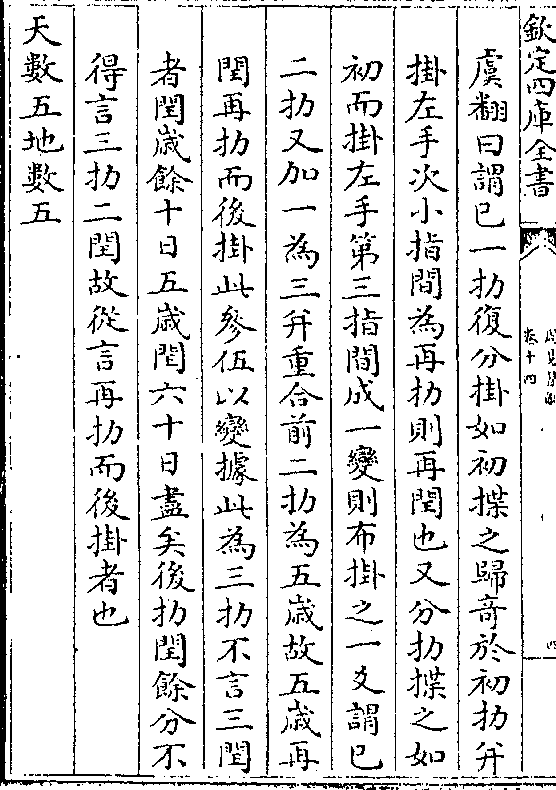 欽定四庫全書
卷十四
四
虞翻曰謂已一扐復分掛如初揲之歸奇於初扐并
掛左手次小指間為再扐則再閏也又分扐揲之如
初而掛左手第三指間成一變則布掛之一爻謂已
二扐又加一為三并重合前二扐為五歲故五歲再
閏再扐而後掛此參伍以變據此為三扐不言三閏
者閏歲餘十日五歲閏六十日盡矣後扐閏餘分不
得言三扐二閏故從言再扐而後掛者也
天數五地數五